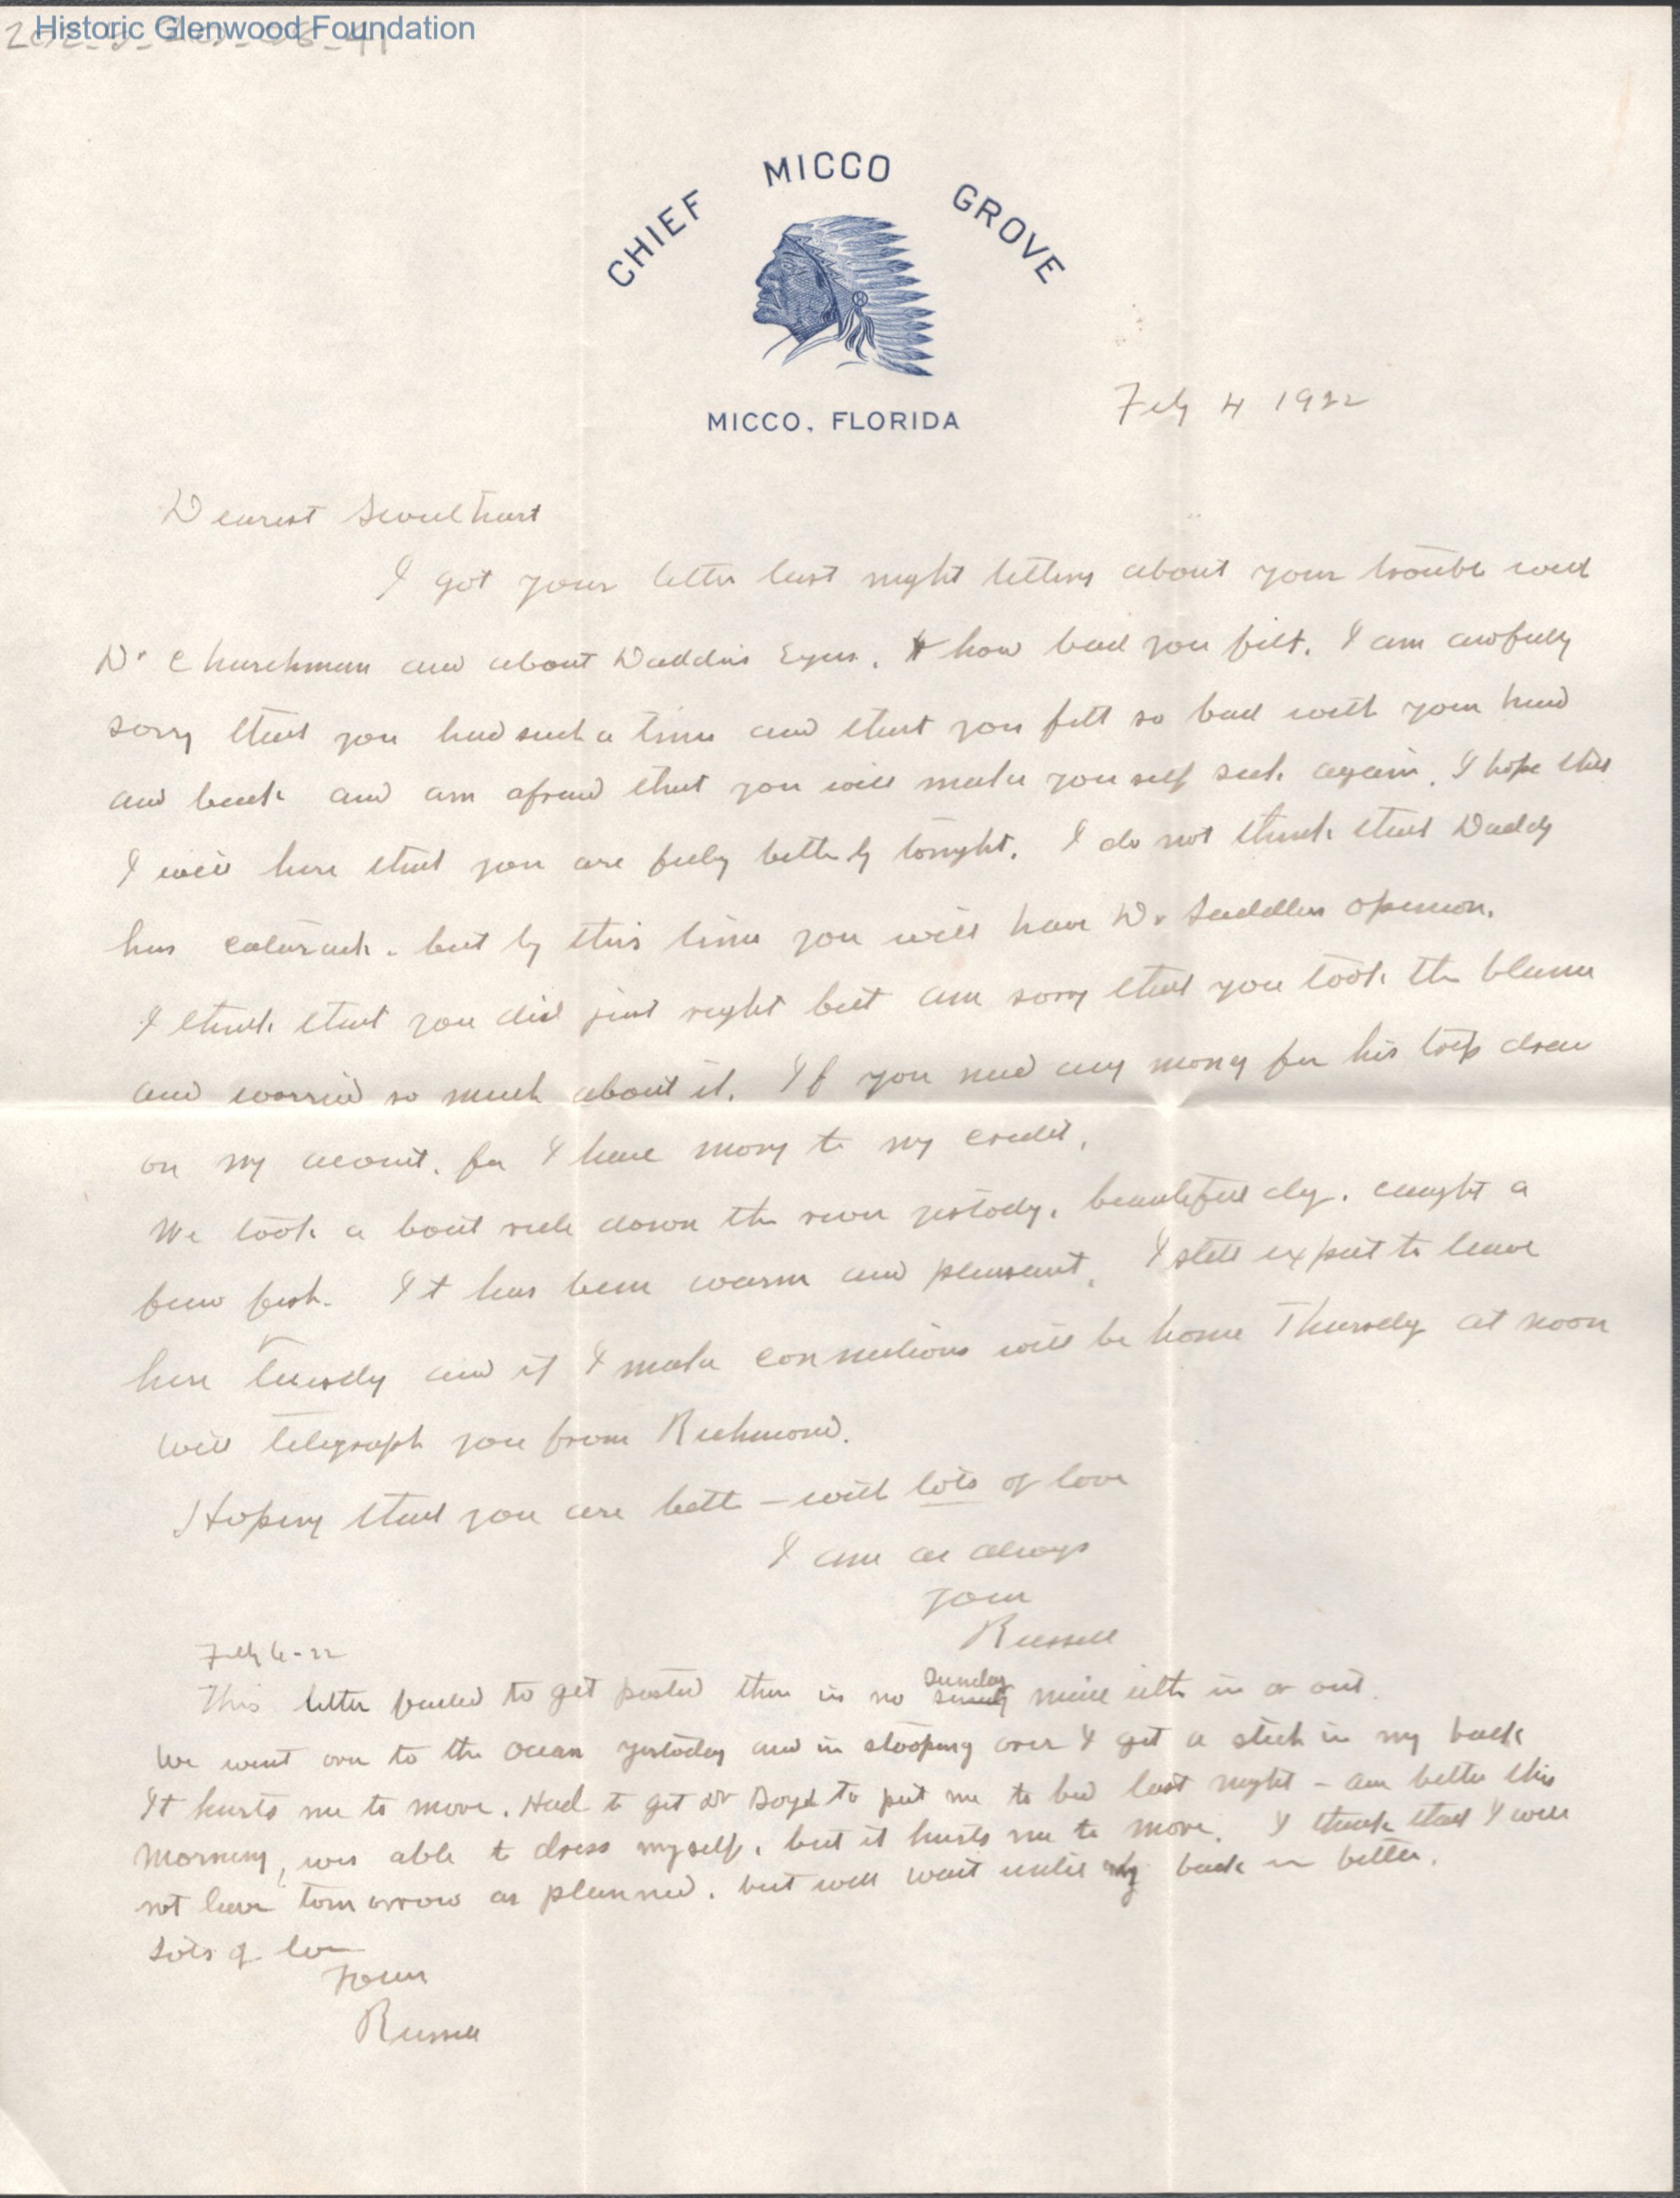 Historic Glenwood Foundation
CHIEF MICCO GROVE
MICCO, FLORIDA
Feby 4 1922
Dearest Sweethart
I got your letter last night telling about your trouble with
Dr Churchman and about Daddies Eyes. & how bad you felt. I am awfully
sorry that you had such a time and that you felt so bad with your head
and back and am afraid that you will make yourself sick again. I hope that
I will here that you are feeling better by tonight. I do not think that Daddy
has cataract. but by this time you will have Dr opinion.
I think that you did just right but am sorry that you took the blame
and worried so much about it. If you need any money for his trip draw
on my acount. for I have mony to my credit.
We took a boat ride down the river yestody. beautifull day. caught a
few fish. It has been warm and pleasant. I still expect to leave
here Tuesdy and if I make connections will be home Thursdy at noon
will telegraph you from Richmond.
Hoping that you are bettr — with lots of love
I am as always
your
Russell
Feby 6-22
This letter failed to get posted there is no Sunday mail eithr in or out.
We went over to the Ocean yestoday and in stooping over I got a stick in my back
It hurts me to move. Had to get Dr Boyd to put me to bed last night - am better this
morning, was able to dress myself, but it hurts me to move. I think that I will
not leave tomorrow as planned. but will wait until my back is better.
Lots of love
Your
Russell